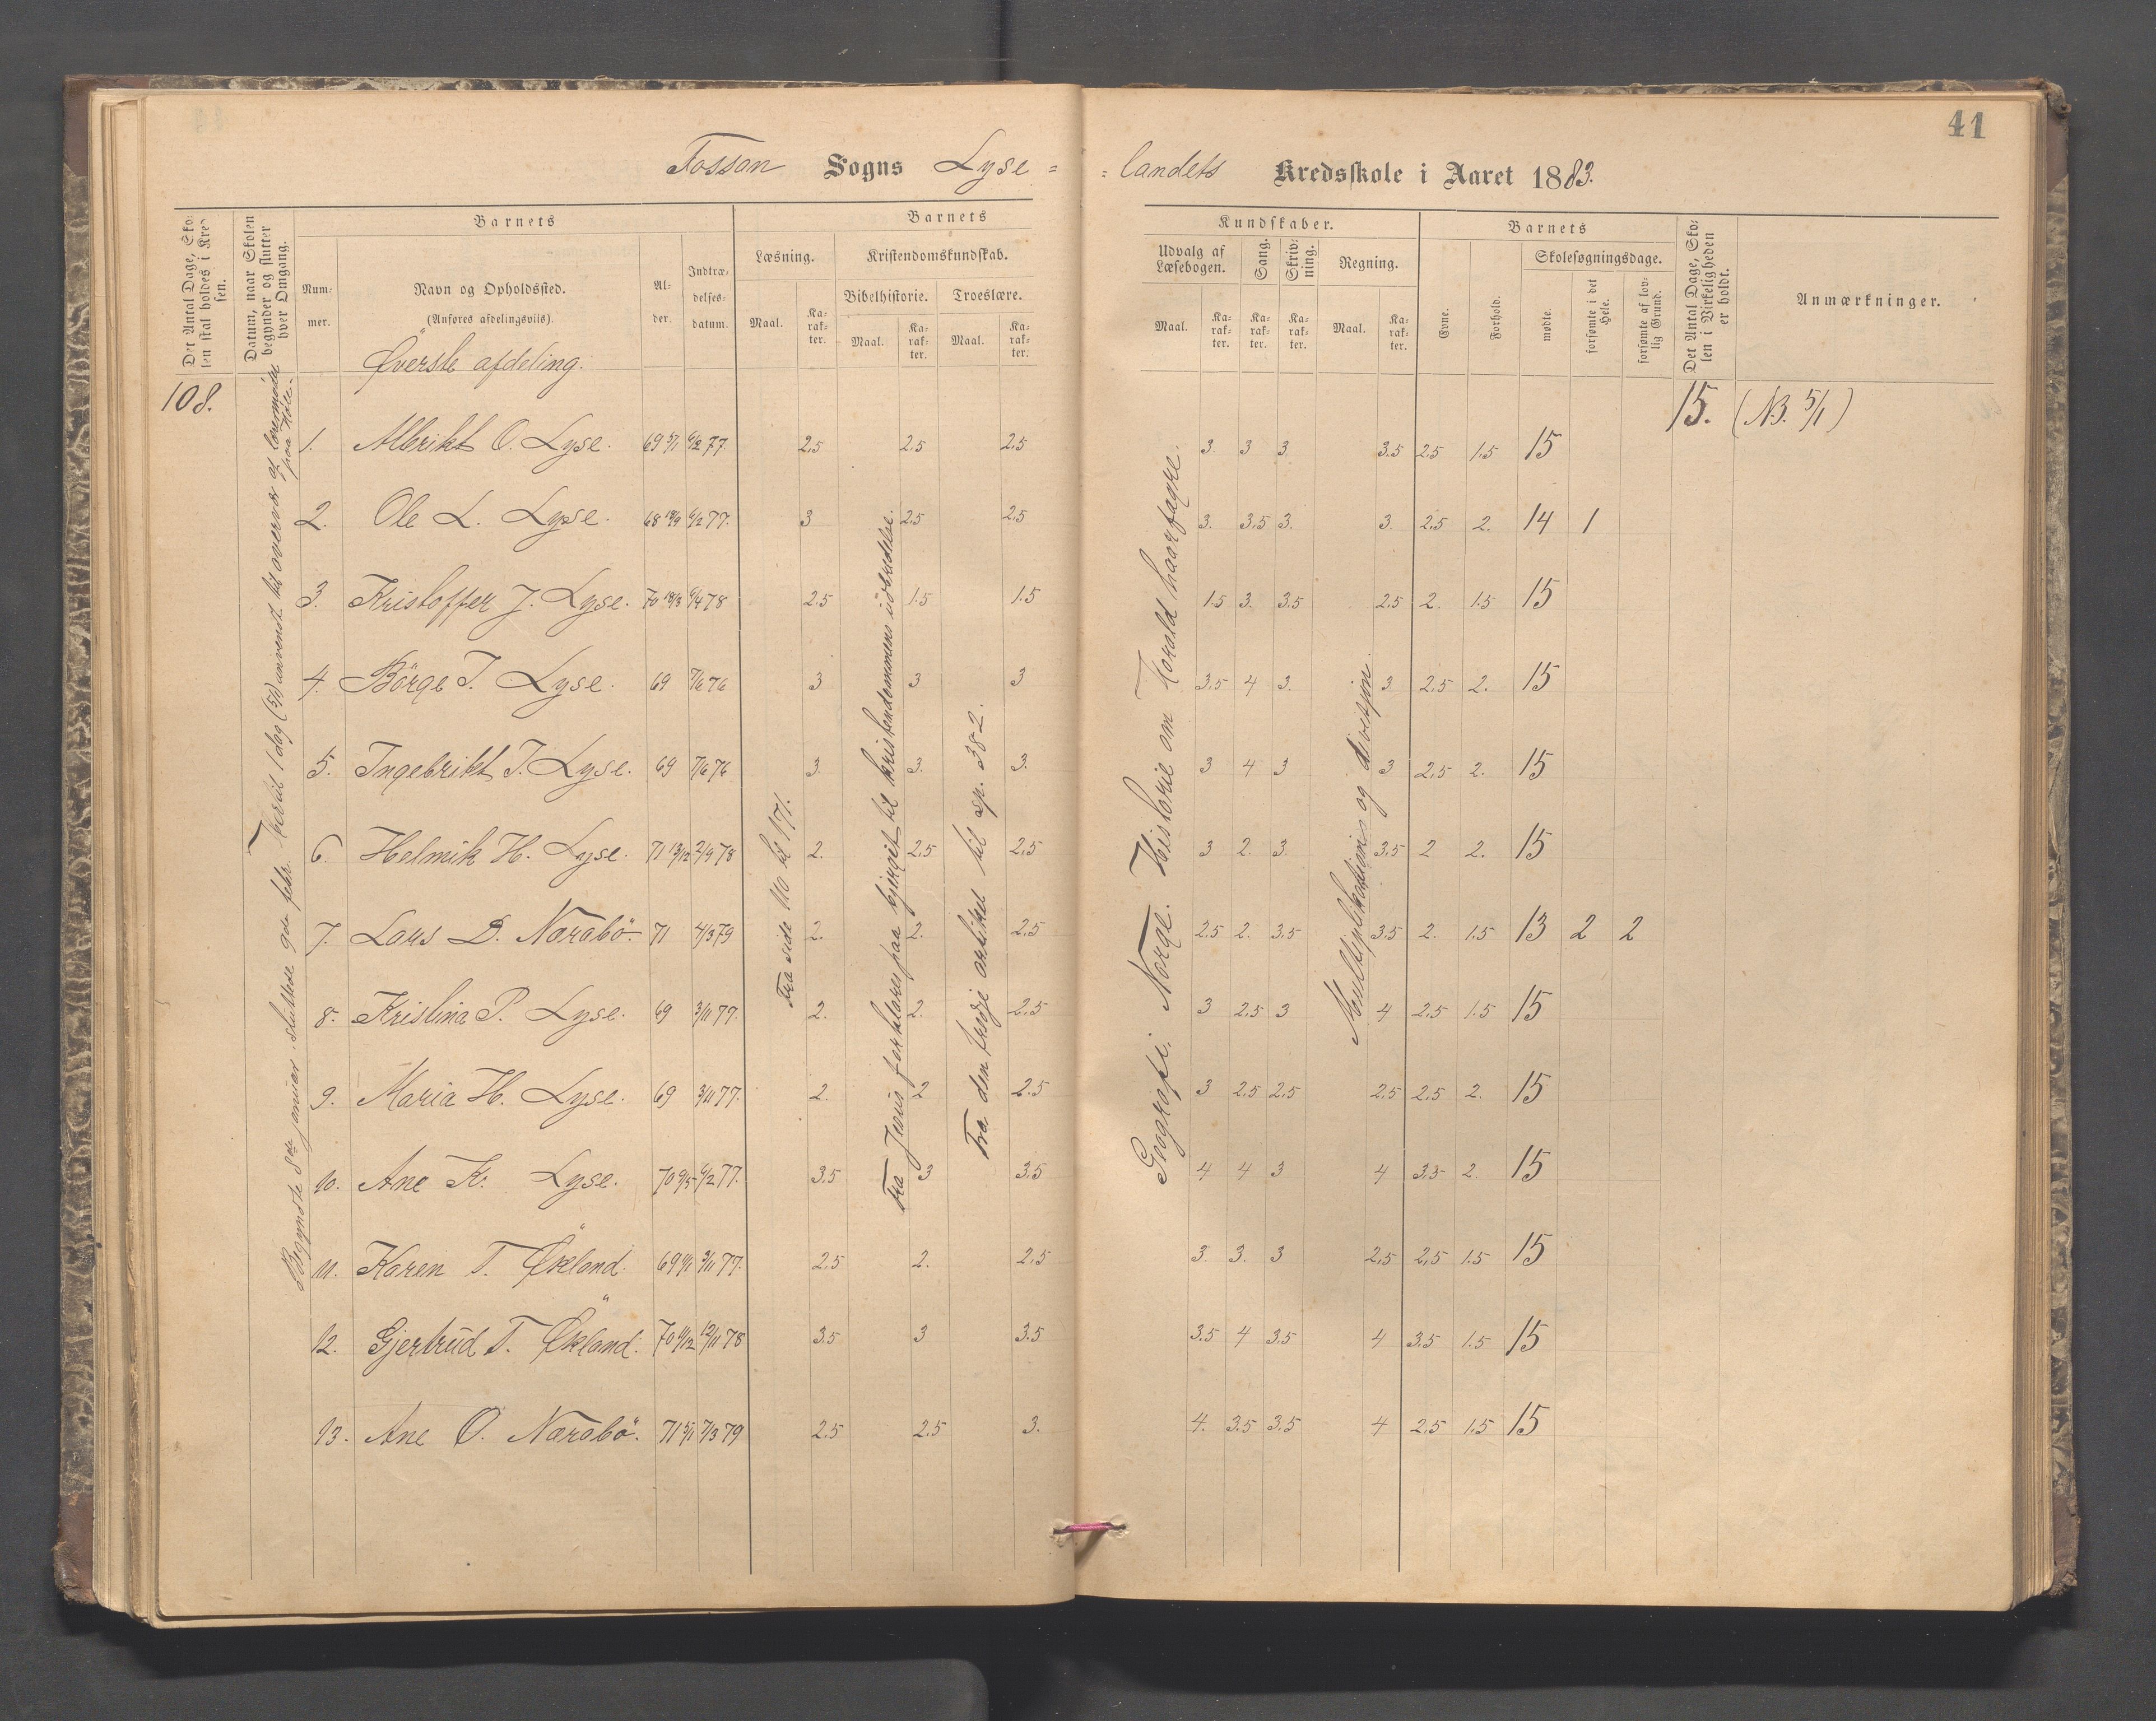 41
Fossan Sogns Lyse = = landets Kredsskole i Aaret 1883.
Det Antal Dage, Skolen skal holdes i Kredsen.
Datum, naar Skolen begynder og slutter hver Omgang.
Barnets
Nummer.
Navn og Opholdssted.
(Anføres afdelingsviis).
Alder.
Indtrædelsesdatum.
Barnets
Læsning.
Maal.
Karakter.
Kristendomskundskab.
Bibelhistorie.
Maal.
Karakter.
Troeslære.
Maal.
Karakter.
Kundskaber.
Udvalg af Læsebogen.
Maal.
Karakter.
Sang.
Karakter.
Skrivning.
Karakter.
Regning.
Maal.
Karakter.
Barnets
Evne.
Forhold.
Skolesøgningsdage.
mødte.
forsømte i det Hele.
forsømte af lovlig Grund.
Det Antal Dage, Skolen i Virkeligheden er holdt.
Anmærkninger.
Øverste afdeling.
108.
15. (NB. 5/1)
1. Albrikt O. Lyse. 69 5/1 6/2 77. 2.5 2.5 2.5 3. 3 3. 3.5 2.5 1.5 15
2. Ole L. Lyse. 68 18/9 6/2 77. 3 2.5 2.5 3. 3.5 3. 3. 2.5 2. 14 1
3. Kristoffer J. Lyse. 70 18/3 6/4 78 2.5 1.5 1.5 1.5 3. 3.5 2.5 2. 1.5 15
4. Börge T. Lyse. 69 7/6 76 3 3 3 3.5 4 3. 3 2.5 2. 15
5. Ingebrikt T. Lyse. 69 7/6 76 3. 3. 3. 3 4 3 3 2.5 2. 15
6. Helmik H. Lyse. 71 13/12 2/9 78 2. 2.5 2.5 3 2. 3. 3.5 2 2. 15
7. Lars D. Nærabö. 71 4/3 79 2. 2. 2.5 2.5 2. 3.5 3.5 2. 1.5 13 2 2
8. Kristina P. Lyse. 69 3/11 77. 2. 2. 2.5 3 2.5 3 4 2.5 1.5 15
9. Maria H. Lyse. 69 3/11 77. 2. 2 2.5 3 2.5 2.5 2.5 2.5 2. 15
10. Ane K. Lyse. 70 9/5 6/2 77. 3.5 3 3.5 4 4 3 4 3.5 2. 15
11. Karen T. Økland. 69 1/1 3/11 77. 2.5 2. 2.5 3. 3. 3 2.5 2.5 1.5 15
12. Gjertrud T. Økland. 70 11/12 12/11 78 3.5 3 3.5 3.5 4 3.5 4 3.5 1.5 15
13. Ane O. Nærabö. 71 5/1 7/3 79 2.5 2.5 3. 4. 3.5 3.5 4 2.5 1.5 15
Begyndte 8de januar. sluttede 9de febr. hertil 1 dag (5/1) anvendt til overvær af lærermødet paa Høle.
Fra side 110 til 171.
Fra Jesus forklares paa bjerget til kristendommens udbredelse.
Fra den tredje artikel til sp. 382.
Geografi. Norge. Historie om Harald haarfagre.
Multiplikation og divisjon.